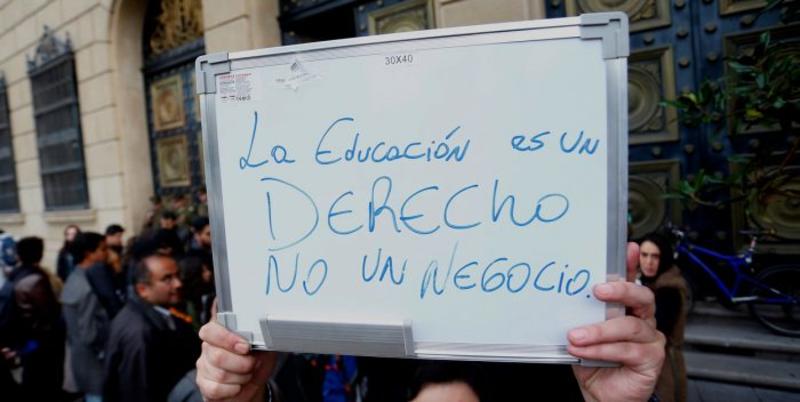 30X40
La Educación es un
DERECHO
NO UN NEGOCIO.